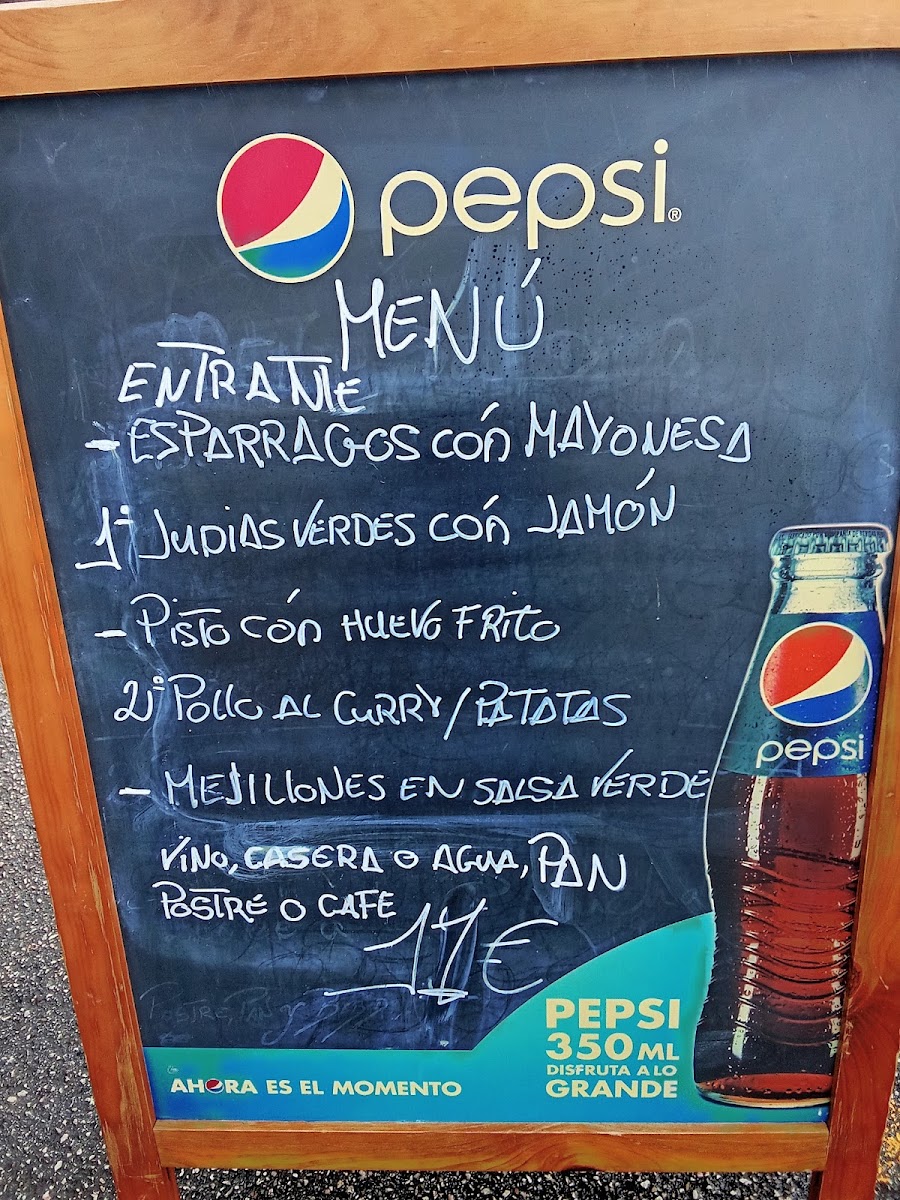 pepsi®
MENÚ
ENTRANTE
- ESPARRAGOS CÓN MAYONESA
1º JUDIAS VERDES CÓN JAMÓN
- PISTO CÓN HUEVO FRITO
2º POLLO AL CURRY/PATATAS
- MEJILLONES EN SALSA VERDE
VINO, CASERA O AGUA, PAN
POSTRE O CAFE
11€
pepsi
PEPSI
350 ML
DISFRUTA A LO
GRANDE
AHORA ES EL MOMENTO